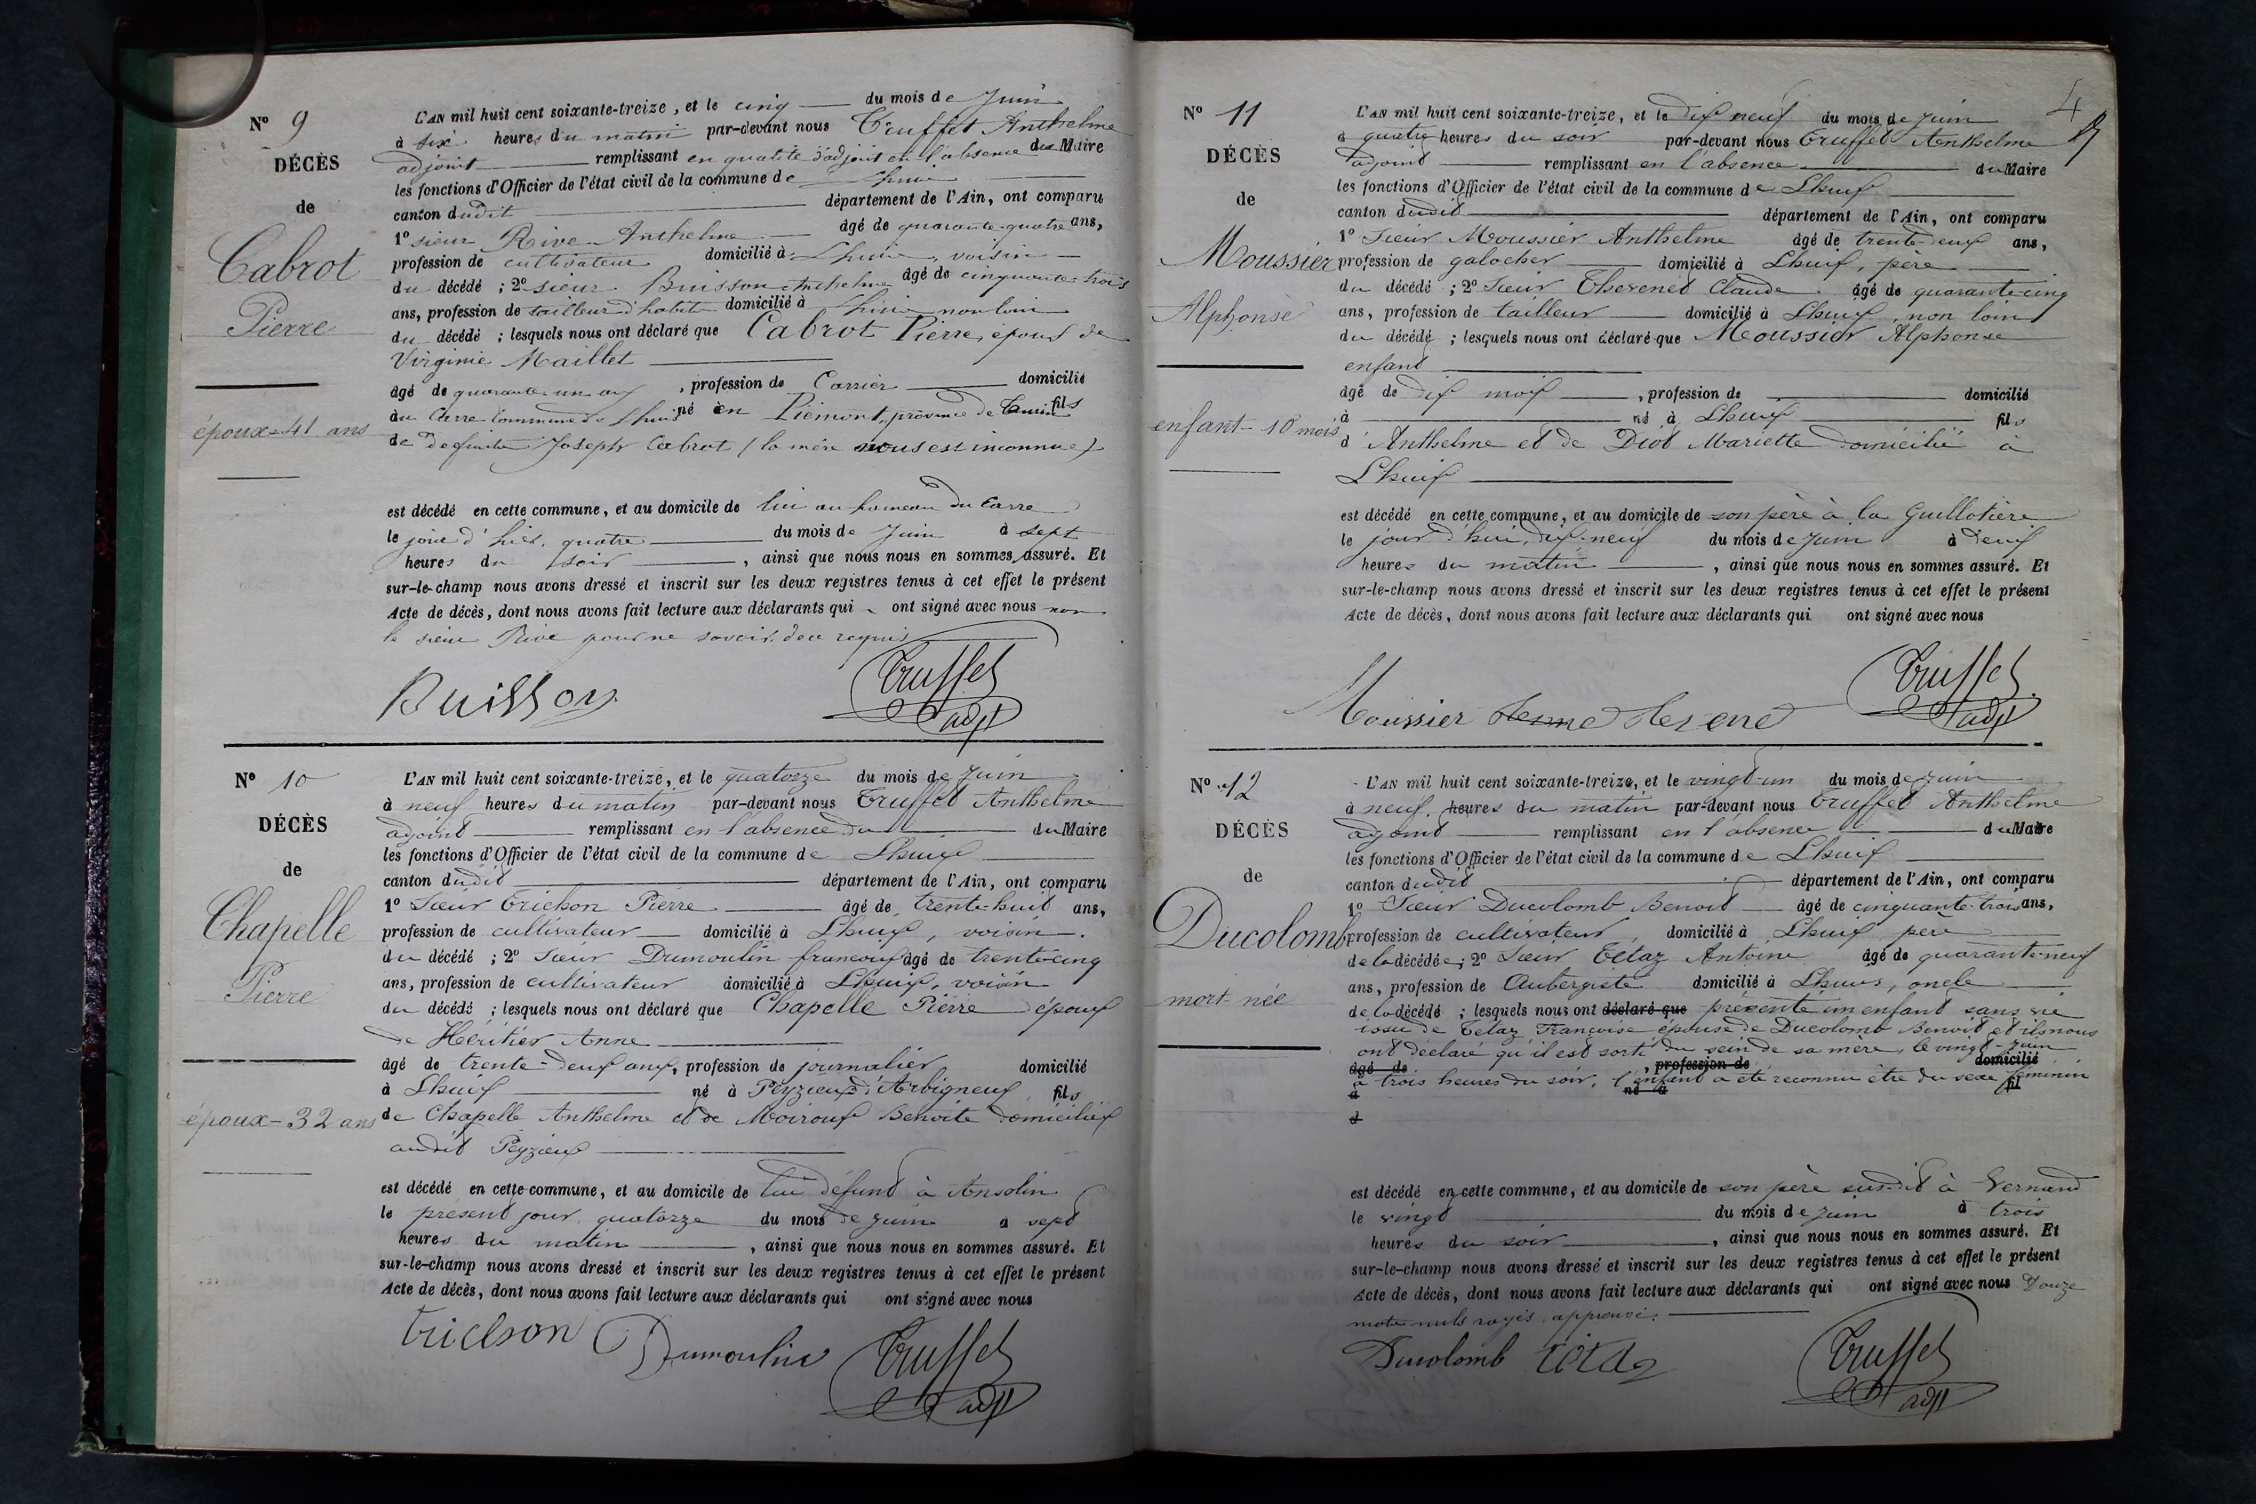 Nº 9
DÉCÈS
de
Cabrot
Pierre
époux - 41 ans
L'AN mil huit cent soixante-treize, et le cinq du mois de Juin
à six heures du matin par-devant nous Truffet Anthelme
adjoint remplissant en qualité d'adjoint en l'absence du Maire
les fonctions d'Officier de l'état civil de la commune de Lhuis
canton dudit département de l'Ain, ont comparu
1º sieur Rive Anthelme âgé de quarante-quatre ans,
profession de cultivateur domicilié à Lhuis, voisin
du décédé ; 2º sieur Buisson Anthelme âgé de cinquante-trois
ans, profession de tailleur d'habits domicilié à Lhuis non loin
du décédé ; lesquels nous ont déclaré que Cabrot Pierre, époux de
Virginie Maillet
âgé de quarante un ans, profession de Carrier domicilié
au Carre Commune de Lhuis né en Piémont, province de Turin fils
de defunt Joseph Cabrot (la mère nous est inconnue)
est décédé en cette commune, et au domicile de lui au hameau du Carre
le jour d'hier, quatre du mois de Juin à sept
heures du soir, ainsi que nous nous en sommes assuré. Et
sur-le-champ nous avons dressé et inscrit sur les deux registres tenus à cet effet le présent
Acte de décès, dont nous avons fait lecture aux déclarants qui ont signé avec nous non
le sieur Rive pour ne savoir de ce requis
Buisson Truffet
adjt
Nº 10
DÉCÈS
de
Chapelle
Pierre
époux - 32 ans
L'AN mil huit cent soixante-treize, et le quatorze du mois de Juin
à neuf heures du matin par-devant nous Truffet Anthelme
adjoint remplissant en l'absence du du Maire
les fonctions d'Officier de l'état civil de la commune de Lhuis
canton dudit département de l'Ain, ont comparu
1º Sieur Trichon Pierre âgé de trente-huit ans,
profession de cultivateur domicilié à Lhuis, voisin.
du décédé ; 2º Sieur Dumoulin françois âgé de trente-cinq
ans, profession de cultivateur domicilié à Lhuis, voisin
du décédé ; lesquels nous ont déclaré que Chapelle Pierre époux
de Héritier Anne
âgé de trente-deux ans, profession de journalier domicilié
à Lhuis né à Peyzieux d'Arbigneux fils
de Chapelle Anthelme et de Moiroux Benoite domiciliés
audit Peyzieux
est décédé en cette commune, et au domicile de lui défunt à Ansolin
le présent jour quatorze du mois de Juin à sept
heures du matin, ainsi que nous nous en sommes assuré. Et
sur-le-champ nous avons dressé et inscrit sur les deux registres tenus à cet effet le présent
Acte de décès, dont nous avons fait lecture aux déclarants qui ont signé avec nous
Trichon Dumoulin Truffet
adjt
4
Nº 11
DÉCÈS
de
Moussier
Alphonse
enfant - 10 mois
L'AN mil huit cent soixante-treize, et le dix neuf du mois de Juin
à quatre heures du soir par-devant nous Truffet Anthelme
adjoint remplissant en l'absence du Maire
les fonctions d'Officier de l'état civil de la commune de Lhuis
canton dudit département de l'Ain, ont comparu
1º Sieur Moussier Anthelme âgé de trente-deux ans,
profession de galocher domicilié à Lhuis, père
du décédé ; 2º Sieur Thevenet Claude âgé de quarante-cinq
ans, profession de tailleur domicilié à Lhuis, non loin
du décédé ; lesquels nous ont déclaré que Moussier Alphonse
enfant
âgé de dix mois, profession de domicilié
à né à Lhuis fils
d'Anthelme et de Diot Mariette domicilié à
Lhuis
est décédé en cette commune, et au domicile de son père à la Guillotière
le jour d'hui, dix-neuf du mois de Juin à deux
heures du matin, ainsi que nous nous en sommes assuré. Et
sur-le-champ nous avons dressé et inscrit sur les deux registres tenus à cet effet le présent
Acte de décès, dont nous avons fait lecture aux déclarants qui ont signé avec nous
Moussier Truffet
adjt
Nº 12
DÉCÈS
de
Ducolomb
mort-née
L'AN mil huit cent soixante-treize, et le vingt-un du mois de Juin
à neuf heures du matin par-devant nous Truffet Anthelme
adjoint remplissant en l'absence du Maire
les fonctions d'Officier de l'état civil de la commune de Lhuis
canton dudit département de l'Ain, ont comparu
1º Sieur Ducolomb Benoit âgé de cinquante-trois ans,
profession de cultivateur, domicilié à Lhuis père
de la décédée ; 2º Sieur Tétaz Antoine âgé de quarante-neuf
ans, profession de Aubergiste domicilié à Lhuis, oncle
de la décédé ; lesquels nous ont déclaré que présenté un enfant sans vie
issu de Tétaz Françoise épouse de Ducolomb Benoit et ils nous
ont déclaré qu'il est sorti du sein de sa mère, le vingt-Juin
âgé de , profession de domicilié
à trois heures du soir, l'enfant a été reconnu être du sexe féminin
à né à fil
d
est décédé en cette commune, et au domicile de son père susdit à Vernand
le vingt du mois de Juin à trois
heures du soir, ainsi que nous nous en sommes assuré. Et
sur-le-champ nous avons dressé et inscrit sur les deux registres tenus à cet effet le présent
Acte de décès, dont nous avons fait lecture aux déclarants qui ont signé avec nous Douze
mots nuls rayés, approuvé.
Ducolomb Tétaz Truffet
adjt